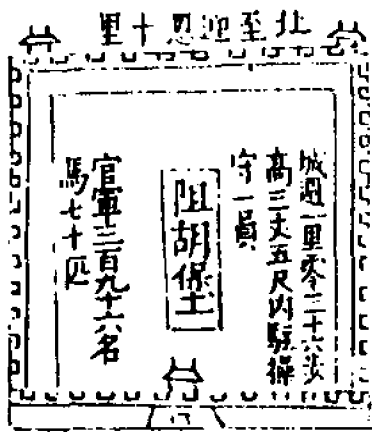 北至迎恩十里
城週一里零二十六步
高三丈五尺內駐操
守一員
阻胡堡
官軍三百九十六名
馬七十匹